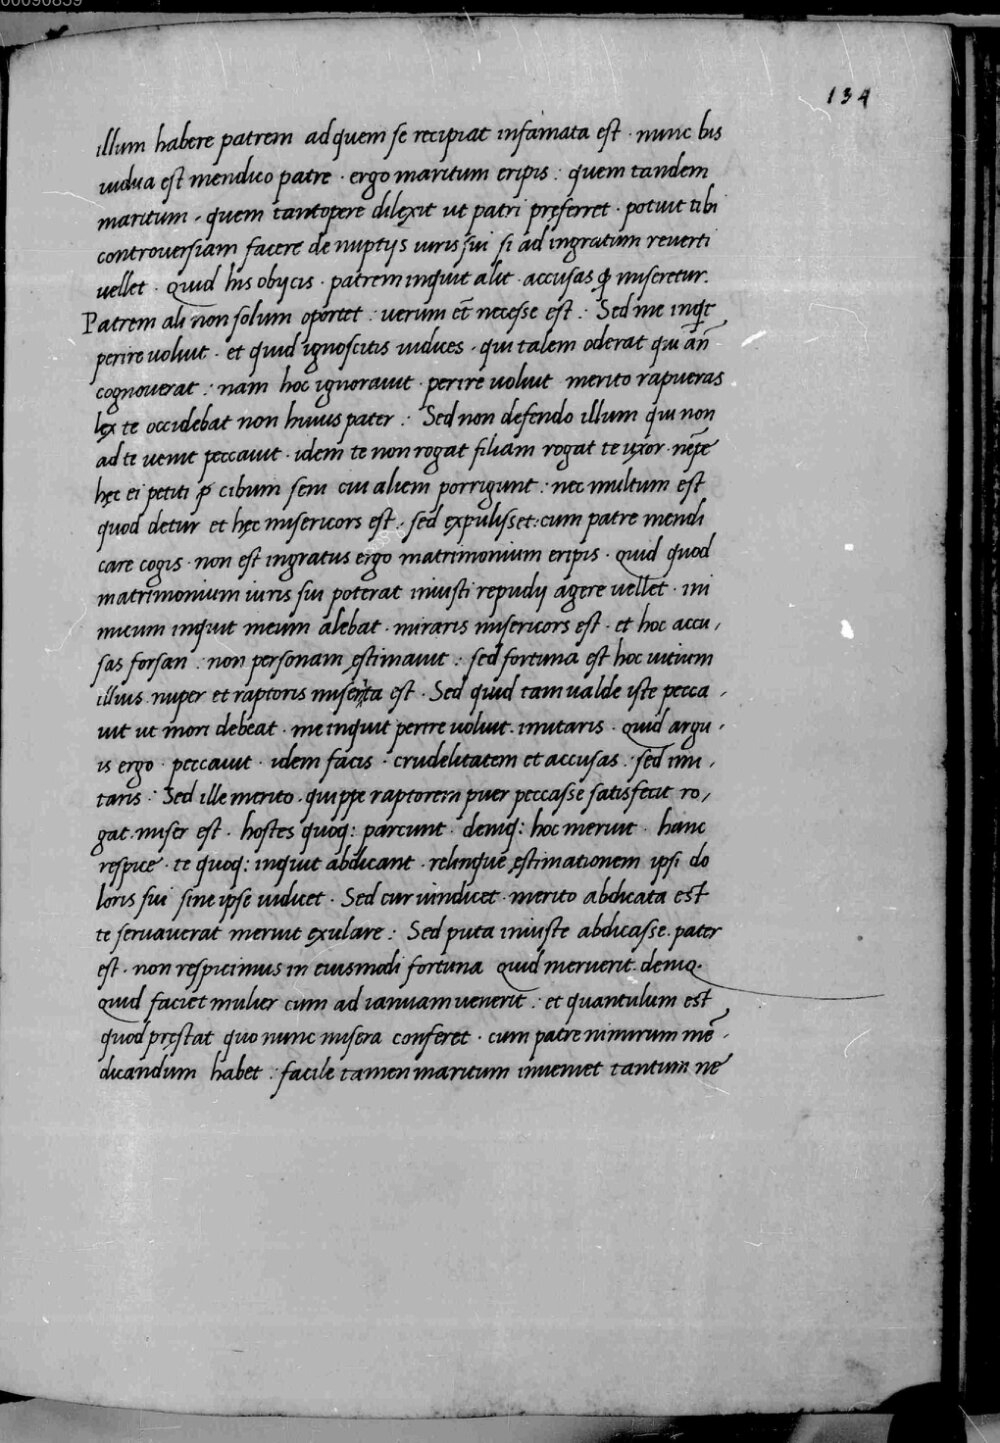 00090859
134
illum habere patrem ad quem se recipiat infamata est · nunc bis
uidua est mendico patre · ergo maritum eripis : quem tandem
maritum · quem tantopere dilexit ut patri pręferret · potuit tibi
controuersiam facere de nuptijs iuris sui si ad ingratum reuerti
uellet · Quid his obijcis · patrem inquit alit · accusas ꝙ miseretur.
Patrem ali non solum oportet : uerum et̄ necesse est : Sed me inqͥt
perire uoluit · et quid ignoscitis iudices · qui talem oderat qui an̄
cognouerat : nam hoc ignorauit · perire uoluit merito rapueras
lex te occidebat non huius pater : Sed non defendo illum qui non
ad te uenit peccauit · idem te non rogat filiam rogat te uxor · nēpe
hęc ei petiti ꝓ cibum seni cui aliem porrigunt : nec multum est
quod detur et hęc misericors est : sed expulisset : cum patre mendi
care cogis · non est ingratus ergo matrimonium eripis · quid quod
matrimonium iuris sui poterat iniusti repudij agere uellet · ini
micum inquit meum alebat · miraris misericors est · et hoc accu,
sas forsan : non personam ęstimauit : sed fortuna est hoc uitium
illius nuper et raptoris miserta est · Sed quid tam ualde iste pecca,
uit ut mori debeat · me inquit perire uoluit · imitaris · quid argu,
is ergo · peccauit · idem facis · crudelitatem et accusas : sed imi,
taris : Sed ille merito · quippe raptorem puer peccasse satisfecit ro,
gat · miser est · hostes quoq: parcunt · deniq: hoc meruit · hanc
respice · te quoq: inquit abdicant · relinque ęstimationem ipsi do
loris sui sine ipse iudicet · Sed cur uindicet · merito abdicata est
te seruauerat meruit exulare : Sed puta iniuste abdicasse · pater
est · non respicimus in eiusmodi fortuna quid meruerit · deniq.
quid faciet mulier cum ad ianuam uenerit : et quantulum est
quod pręstat quo nunc misera conferet · cum patre nimirum mē,
dicandum habet : facile tamen maritum inueniet tantum ne